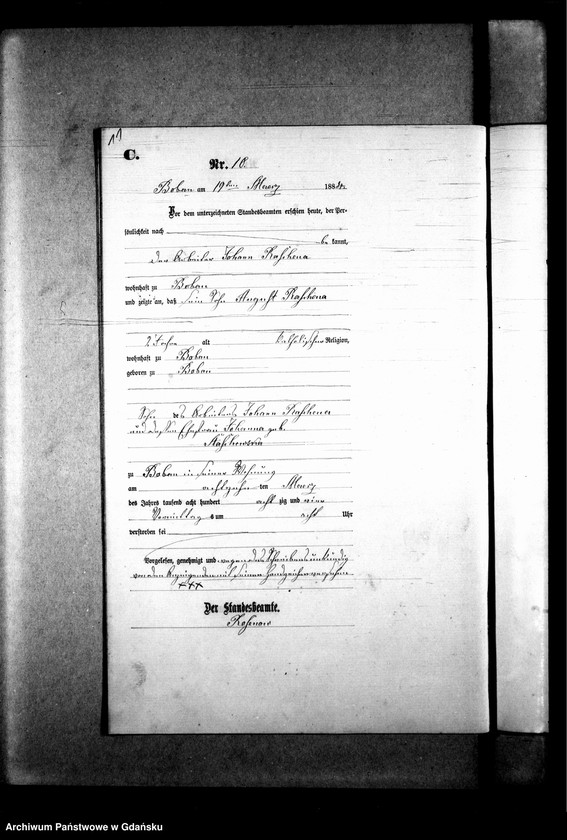 11
C.
Nr. 10
Boban am 19ten Maerz 1884.
Vor dem unterzeichneten Standesbeamten erschien heute, der Per-
sönlichkeit nach
be kannt,
der Arbeiter Johann
wohnhaft zu Boban
und zeigte an, daß sein Sohn August
2 Jahre alt katholischer Religion,
wohnhaft zu Boban
geboren zu Boban
Sohn des Arbeiters Johann
und dessen Ehefrau Johanna geb.
zu Boban in seiner Wohnung
am achtzehnten Maerz
des Jahres tausend acht hundert acht zig und vier
Vormittags um acht Uhr
verstorben sei
Vorgelesen, genehmigt und wegen des Schreibensunkundig
von dem Anzeigenden mit seinem Handzeichen versehen
+++
Der Standesbeamte.
Archiwum Państwowe w Gdańsku